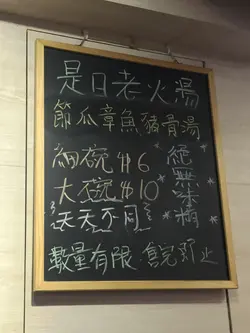 是日老火湯
節瓜章魚豬骨湯
細碗$6
大碗$10
天天不同
絕無味精
數量有限 售完即止